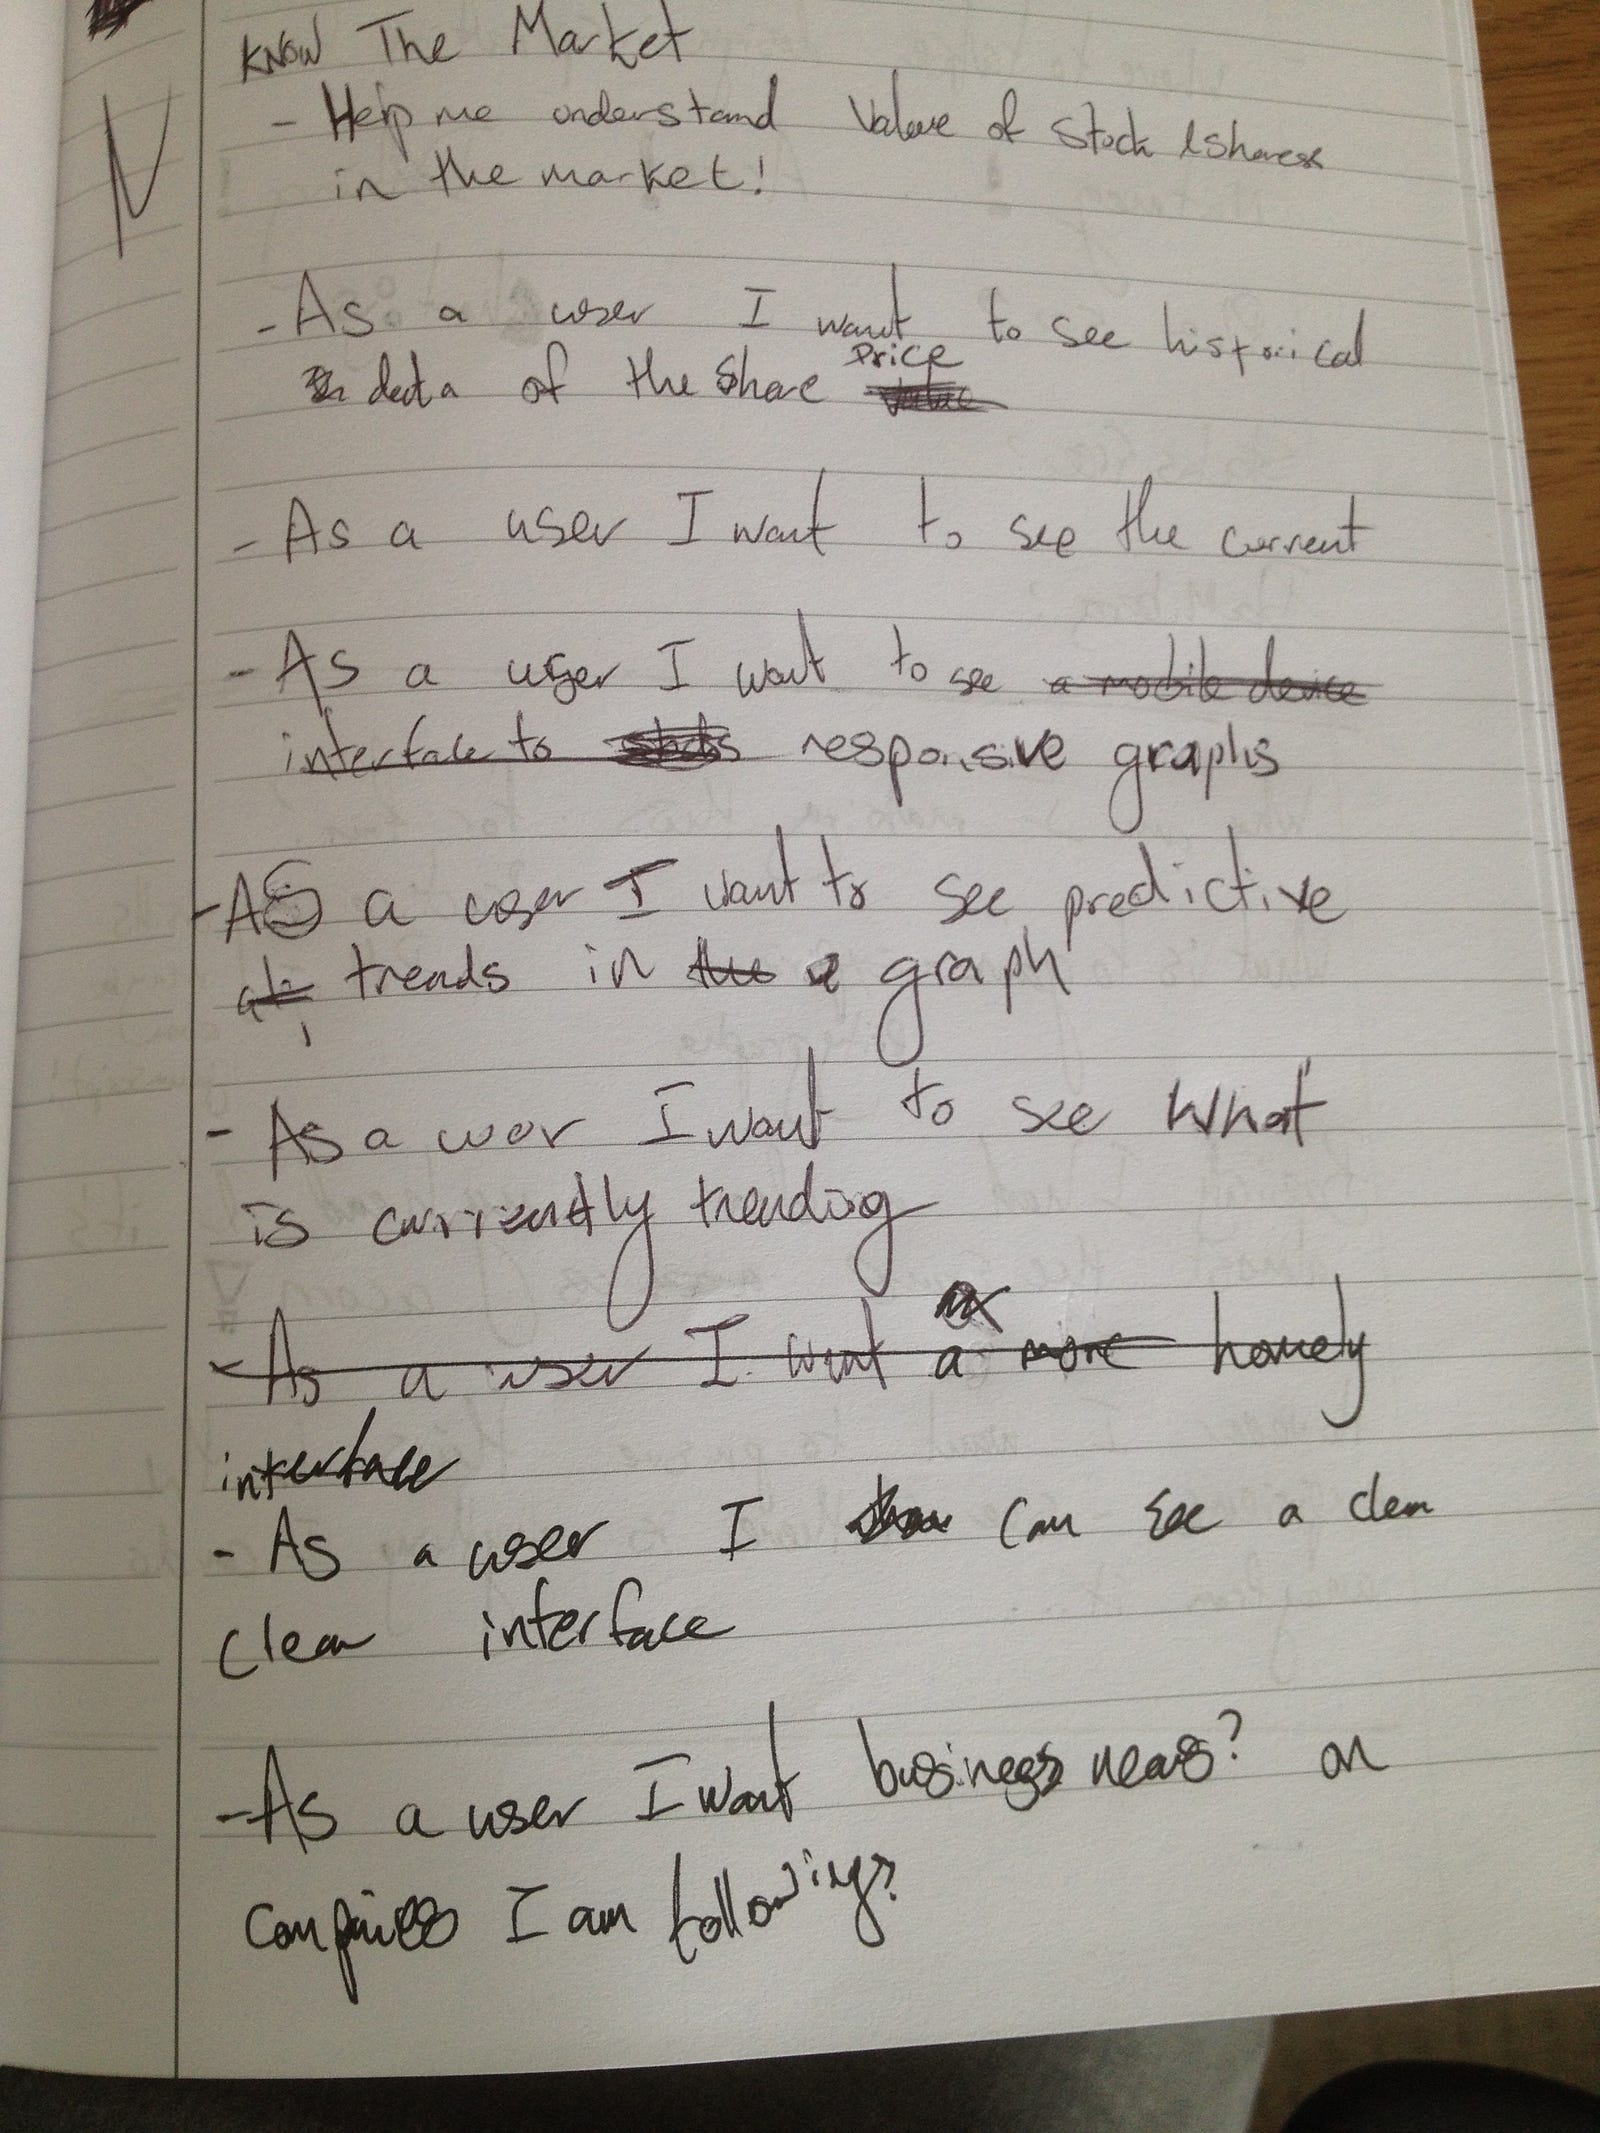 KNOW The Market
- Help me understand Value of Stock & Shares
in the market!
- As a user I want to see historical
data of the Share Price
- As a user I want to see the current
- As a user I want to see a mobile device
interface to responsive graphs
- AS a user I want to see predictive
trends in the a graph
- As a user I want to see What
is currently trending
- As a user I want a more homely
interface
- As a user I can see a clean
clean interface
- As a user I want business news? on
companies I am following?